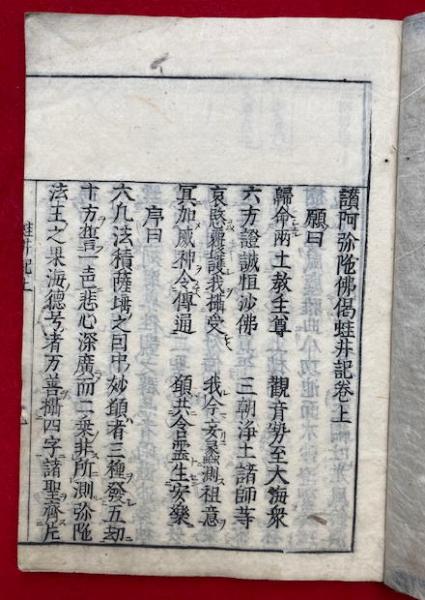 讃阿弥陀佛偈蛙井記巻上
願曰
歸命兩土教主尊　觀音勢至大海衆
六方證誠恒沙佛　三朝浄土諸師等
哀愍護我攝受　我今妄蠡測祖意
冥加威神令傳通　願共含霊生安樂
序曰
六八法積薩埵之因中妙願者三種發五劫
十方聖一音悲心深廣而二乗非所測弥陀
法王之果海德号者万善攝四字諸聖齊片
蛙井記上